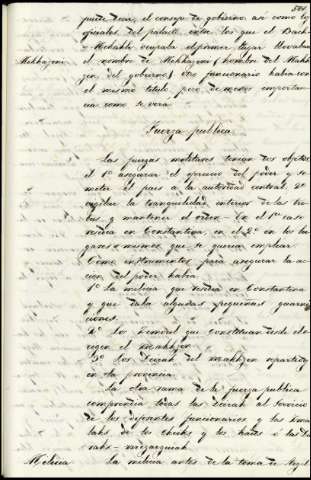 puede decir, el consejo de gobierno así como los
oficiales del palacio entre los que el Bach-
ocupaba el primer lugar llevaban
Makhazeni el nombre de Makhazeni (hombre del Makh
zen, del gobierno) otro funcionario habia con
el mismo titulo pero de menos importan
cia como se verá
Fuerza pública
Las fuerzas militares tenian dos objetos
el 1º asegurar el ejercicio del poder y so-
meter el pais a la autoridad central. 2º
vigilar la tranquilidad interior de las tri
bus y mantener el orden. En el 1er caso
residia en Constantina, en el 2º en los lu
gares mismos que se querian emplear.
Como instrumentos para asegurar la ac-
cion del poder habia
1º La milicia que residia en Constantina
y que daba algunas pequeñas guarni
ciones.
2º Los que constituian desde el o-
rigen el makhzen
3º Los Deirah del makhzen repartidos
en la provincia
La otra rama de la fuerza publica
comprendia todas las deirah al servicio
de los diferentes funcionarios y las
de los cheiks y los kaids o las
Milicia La milicia antes de la toma de Argel